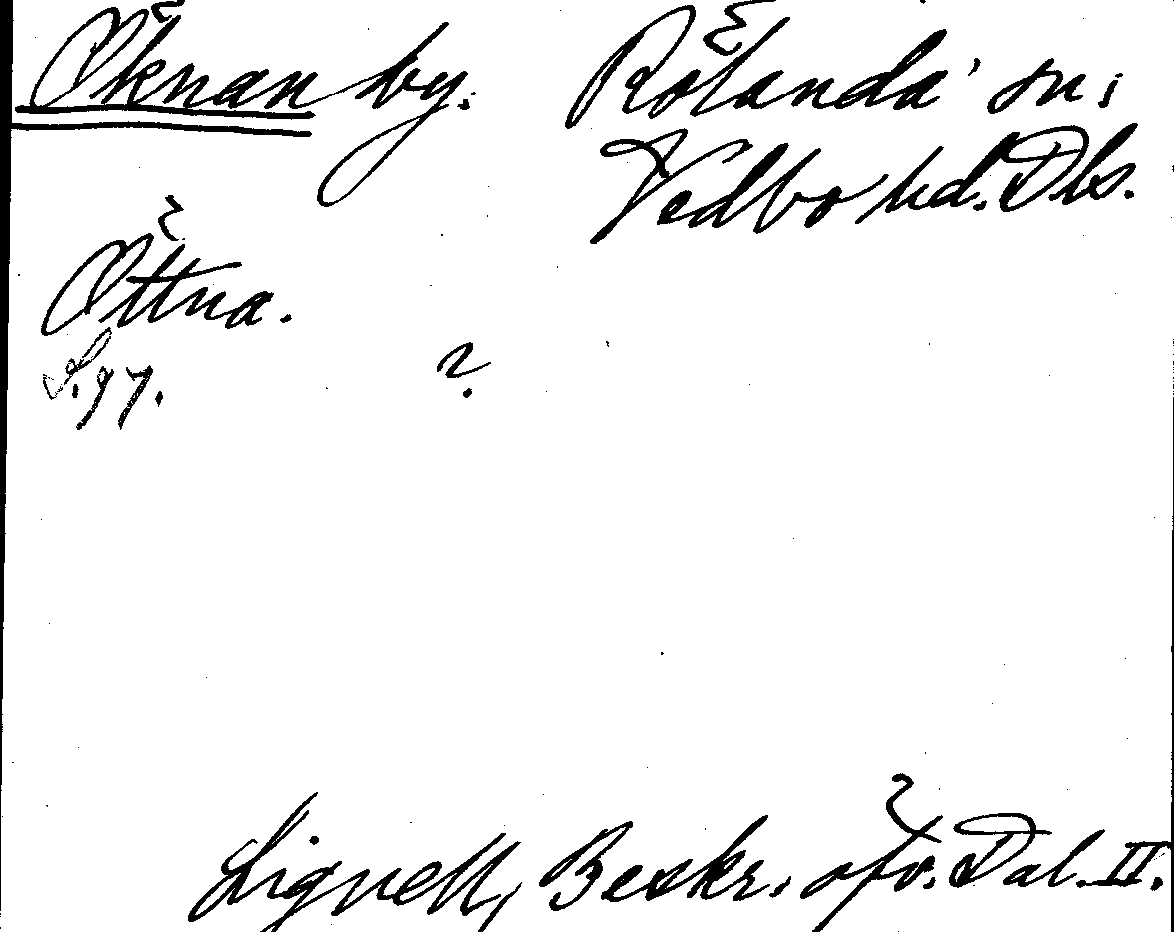 Öknan by. Rölanda sn;
Vedbo hd. Dls.
Öttna.
S. 97.
?
Lignell, Beskr. öfv. Dal. II.